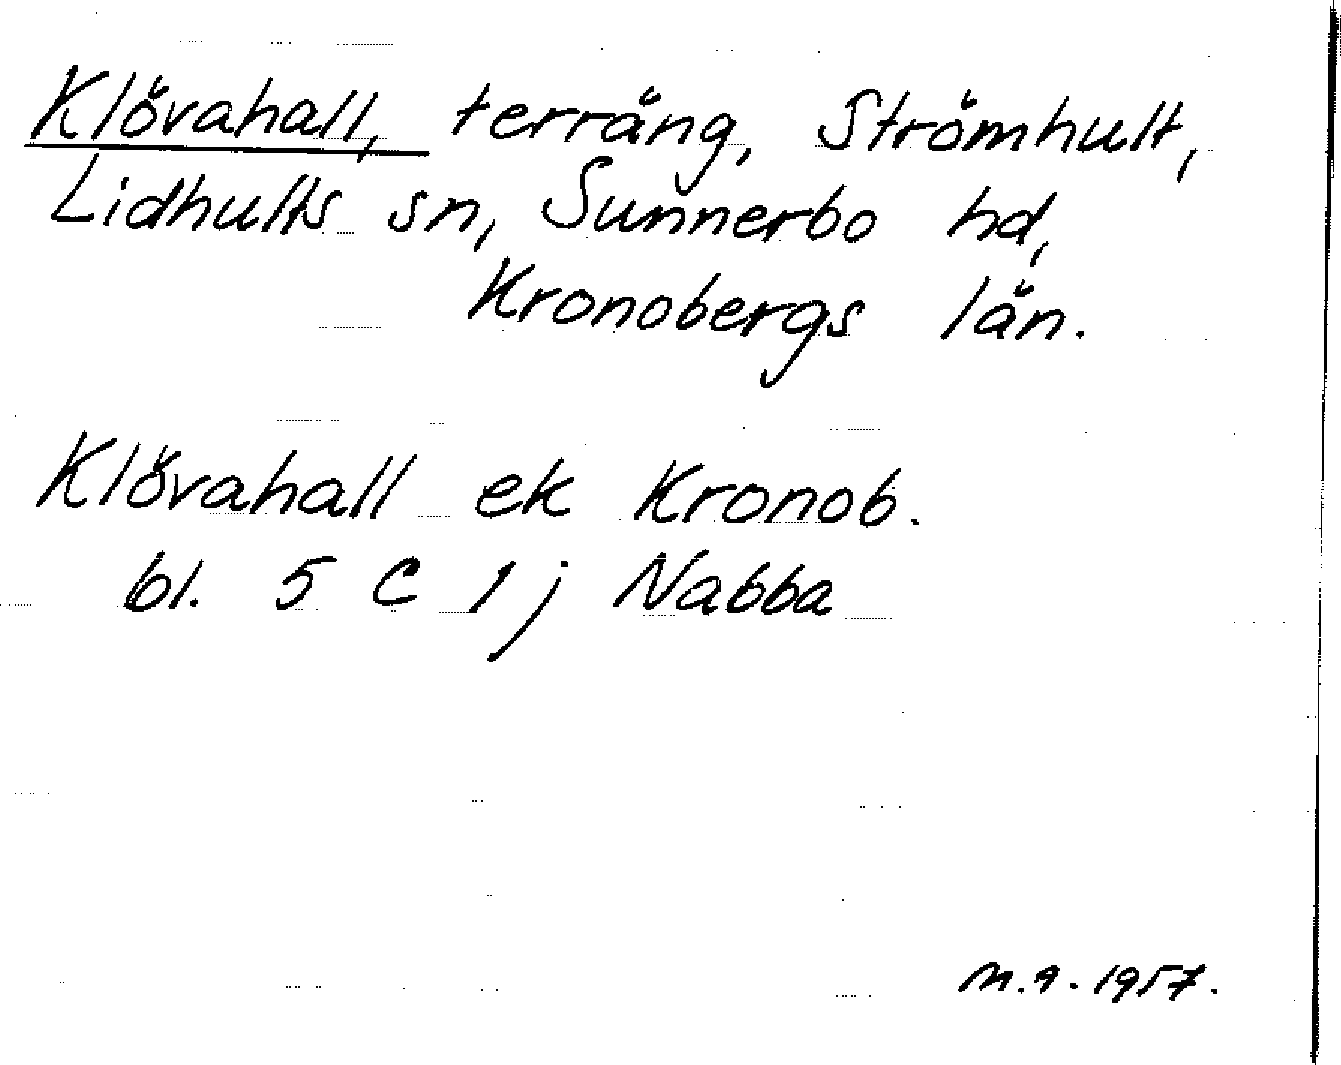 Klövahall, terräng, Strömhult,
Lidhults sn, Sunnerbo hd,
Kronobergs län.
Klövahall ek Kronob.
bl. 5 C 1 j Nabba
M.9.1957.